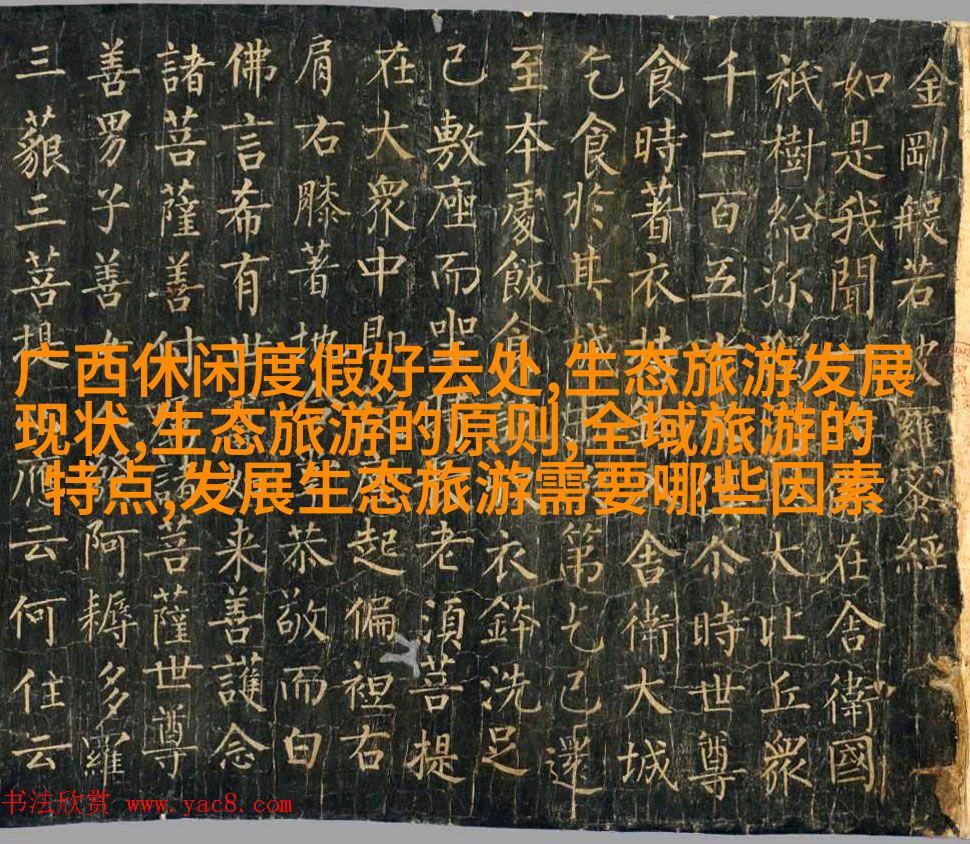 金剛般若波羅蜜經
如是我聞在舍衛國
祇樹給孤大比丘衆
千二百五尒時世尊
食時著衣持舍衛大城
乞食於其城第乞已還
至本處飯食衣鉢洗足
已敷座而坐老須菩提
在大衆中即起偏袒右
肩右膝著地恭敬而白
佛言希有世来善護念
諸菩薩善付諸菩薩世尊
善男子善女發阿耨多羅
三藐三菩提應云何住云
广西休闲度假好去处,生态旅游发展
现状,生态旅游的原则,全域旅游的
特点,发展生态旅游需要哪些因素
书法欣赏 www.yac8.com